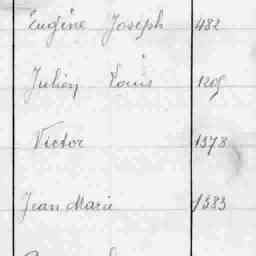 Eugène Joseph 482
Julien Louis 1205
Victor 1378
Jean Marie 1383